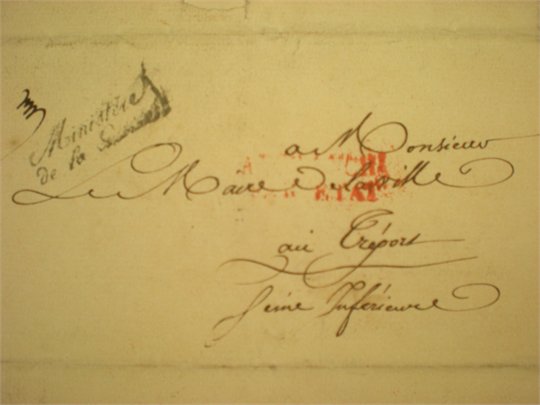 Ministère
de la
a Monsieur
Le Maire de la ville
au Tréport
Seine Inférieure
ETAT